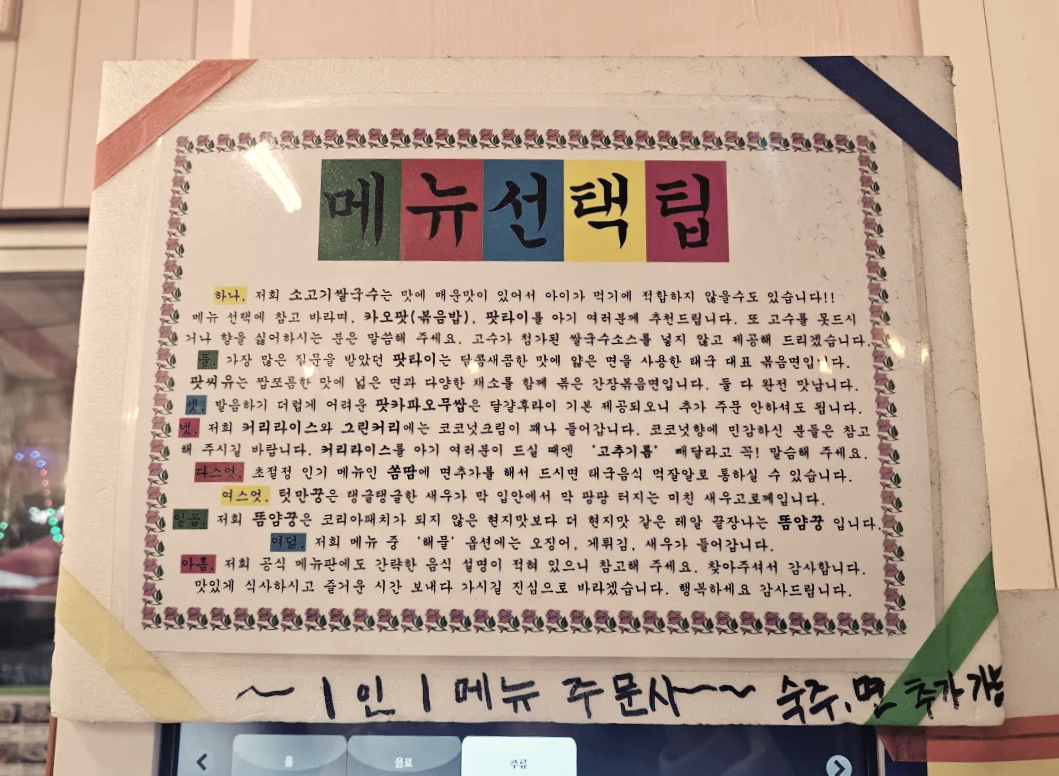 메뉴선택팁
하나. 저희 소고기쌀국수는 맛에 매운맛이 있어서 아이가 먹기에 적합하지 않을수도 있습니다!!
메뉴 선택에 참고 바라며, 카오팟(볶음밥), 팟타이를 아기 여러분께 추천드립니다. 또 고수를 못드시
거나 향을 싫어하시는 분은 말씀해 주세요. 고수가 첨가된 쌀국수소스를 넣지 않고 제공해 드리겠습니다.
둘. 가장 많은 질문을 받았던 팟타이는 달콤새콤한 맛에 얇은 면을 사용한 태국 대표 볶음면입니다.
팟씨유는 짭쪼름한 맛에 넓은 면과 다양한 채소를 함께 볶은 간장볶음면입니다. 둘 다 완전 맛납니다.
셋. 발음하기 더럽게 어려운 팟카파오무쌉은 달걀후라이 기본 제공되오니 추가 주문 안하셔도 됩니다.
넷. 저희 커리라이스와 그린커리에는 코코넛크림이 꽤나 들어갑니다. 코코넛향에 민감하신 분들은 참고
해 주시길 바랍니다. 커리라이스를 아기 여러분이 드실 때엔 '고추기름' 빼달라고 꼭! 말씀해 주세요.
다스엇. 초절정 인기 메뉴인 쏨땀에 면추가를 해서 드시면 태국음식 먹잘알로 통하실 수 있습니다.
여스엇. 텃만꿍은 탱글탱글한 새우가 막 입안에서 막 팡팡 터지는 미친 새우고로께입니다.
일곱. 저희 똠얌꿍은 코리아패치가 되지 않은 현지맛보다 더 현지맛 같은 레알 끝장나는 똠얌꿍 입니다.
여덜. 저희 메뉴 중 '해물' 옵션에는 오징어, 게튀김, 새우가 들어갑니다.
아홉. 저희 공식 메뉴판에도 간략한 음식 설명이 적혀 있으니 참고해 주세요. 찾아주셔서 감사합니다.
맛있게 식사하시고 즐거운 시간 보내다 가시길 진심으로 바라겠습니다. 행복하세요 감사드립니다.
~ 1인 1메뉴 주문사~~ 숙주, 면 추가 가능
홀 음료 주류